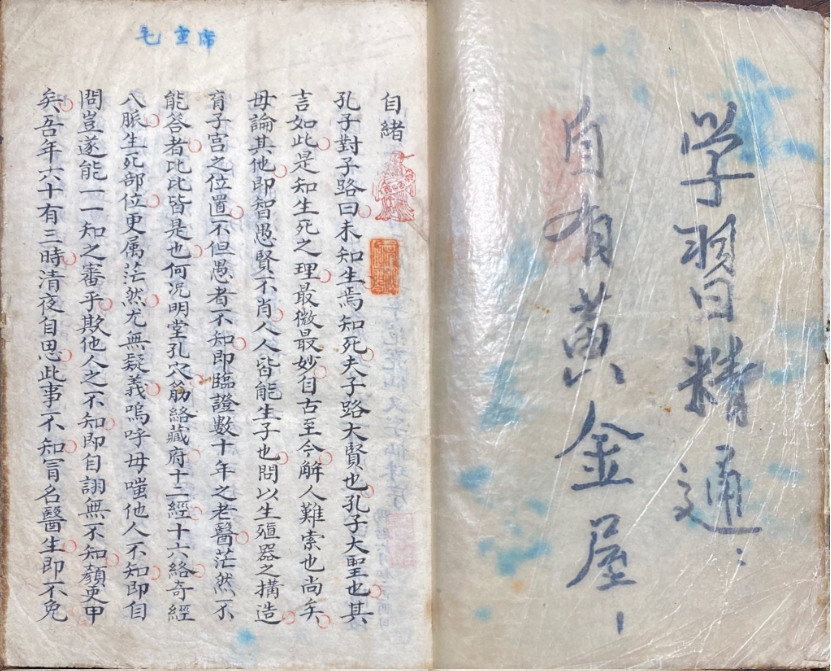 学習精通：
自有黄金屋！
毛主席
自緒
孔子對子路曰未知生焉知死夫子路大賢也孔子大聖也其
言如此是知生死之理最微最妙自古至今解人難索也尚矣
毋論其他即智愚賢不肖人人皆能生子也問以生殖器之搆造
育子宫之位置不但愚者不知即臨證數十年之老醫茫然不
能答者比比皆是也何况明堂孔穴筋絡藏府十二經十六絡奇經
八脈生死部位更属茫然尤無疑義嗚呼毋嗤他人不知即自
問豈遂能一一知之審乎欺他人之不知即自詡無不知顏更甲
矣吾年六十有三時清夜自思此事不知冒名醫生即不免